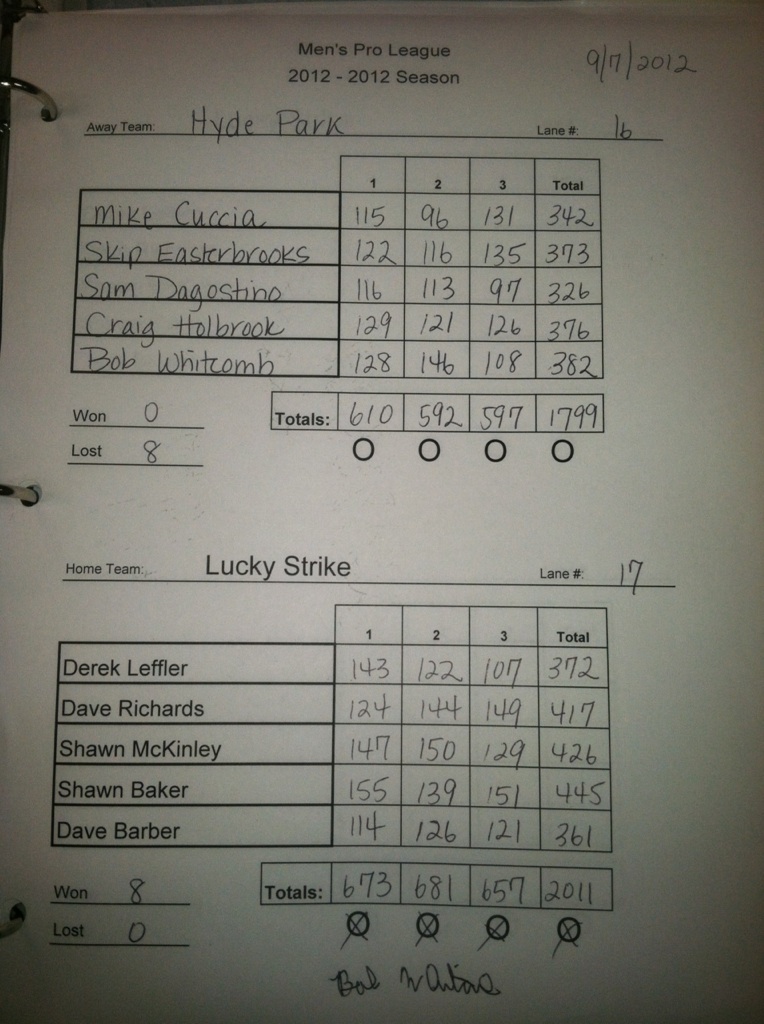 Men's Pro League
2012 - 2012 Season
9/7/2012
Away Team: Hyde Park Lane #: 16
1 2 3 Total
Mike Cuccia 115 96 131 342
Skip Easterbrooks 122 116 135 373
Sam Dagostino 116 113 97 326
Craig Holbrook 129 121 126 376
Bob Whitcomb 128 146 108 382
Won 0 Totals: 610 592 597 1799
Lost 8 O O O O
Home Team: Lucky Strike Lane #: 17
1 2 3 Total
Derek Leffler 143 122 107 372
Dave Richards 124 144 149 417
Shawn McKinley 147 150 129 426
Shawn Baker 155 139 151 445
Dave Barber 114 126 121 361
Won 8 Totals: 673 681 657 2011
Lost 0 O O O O
Bob